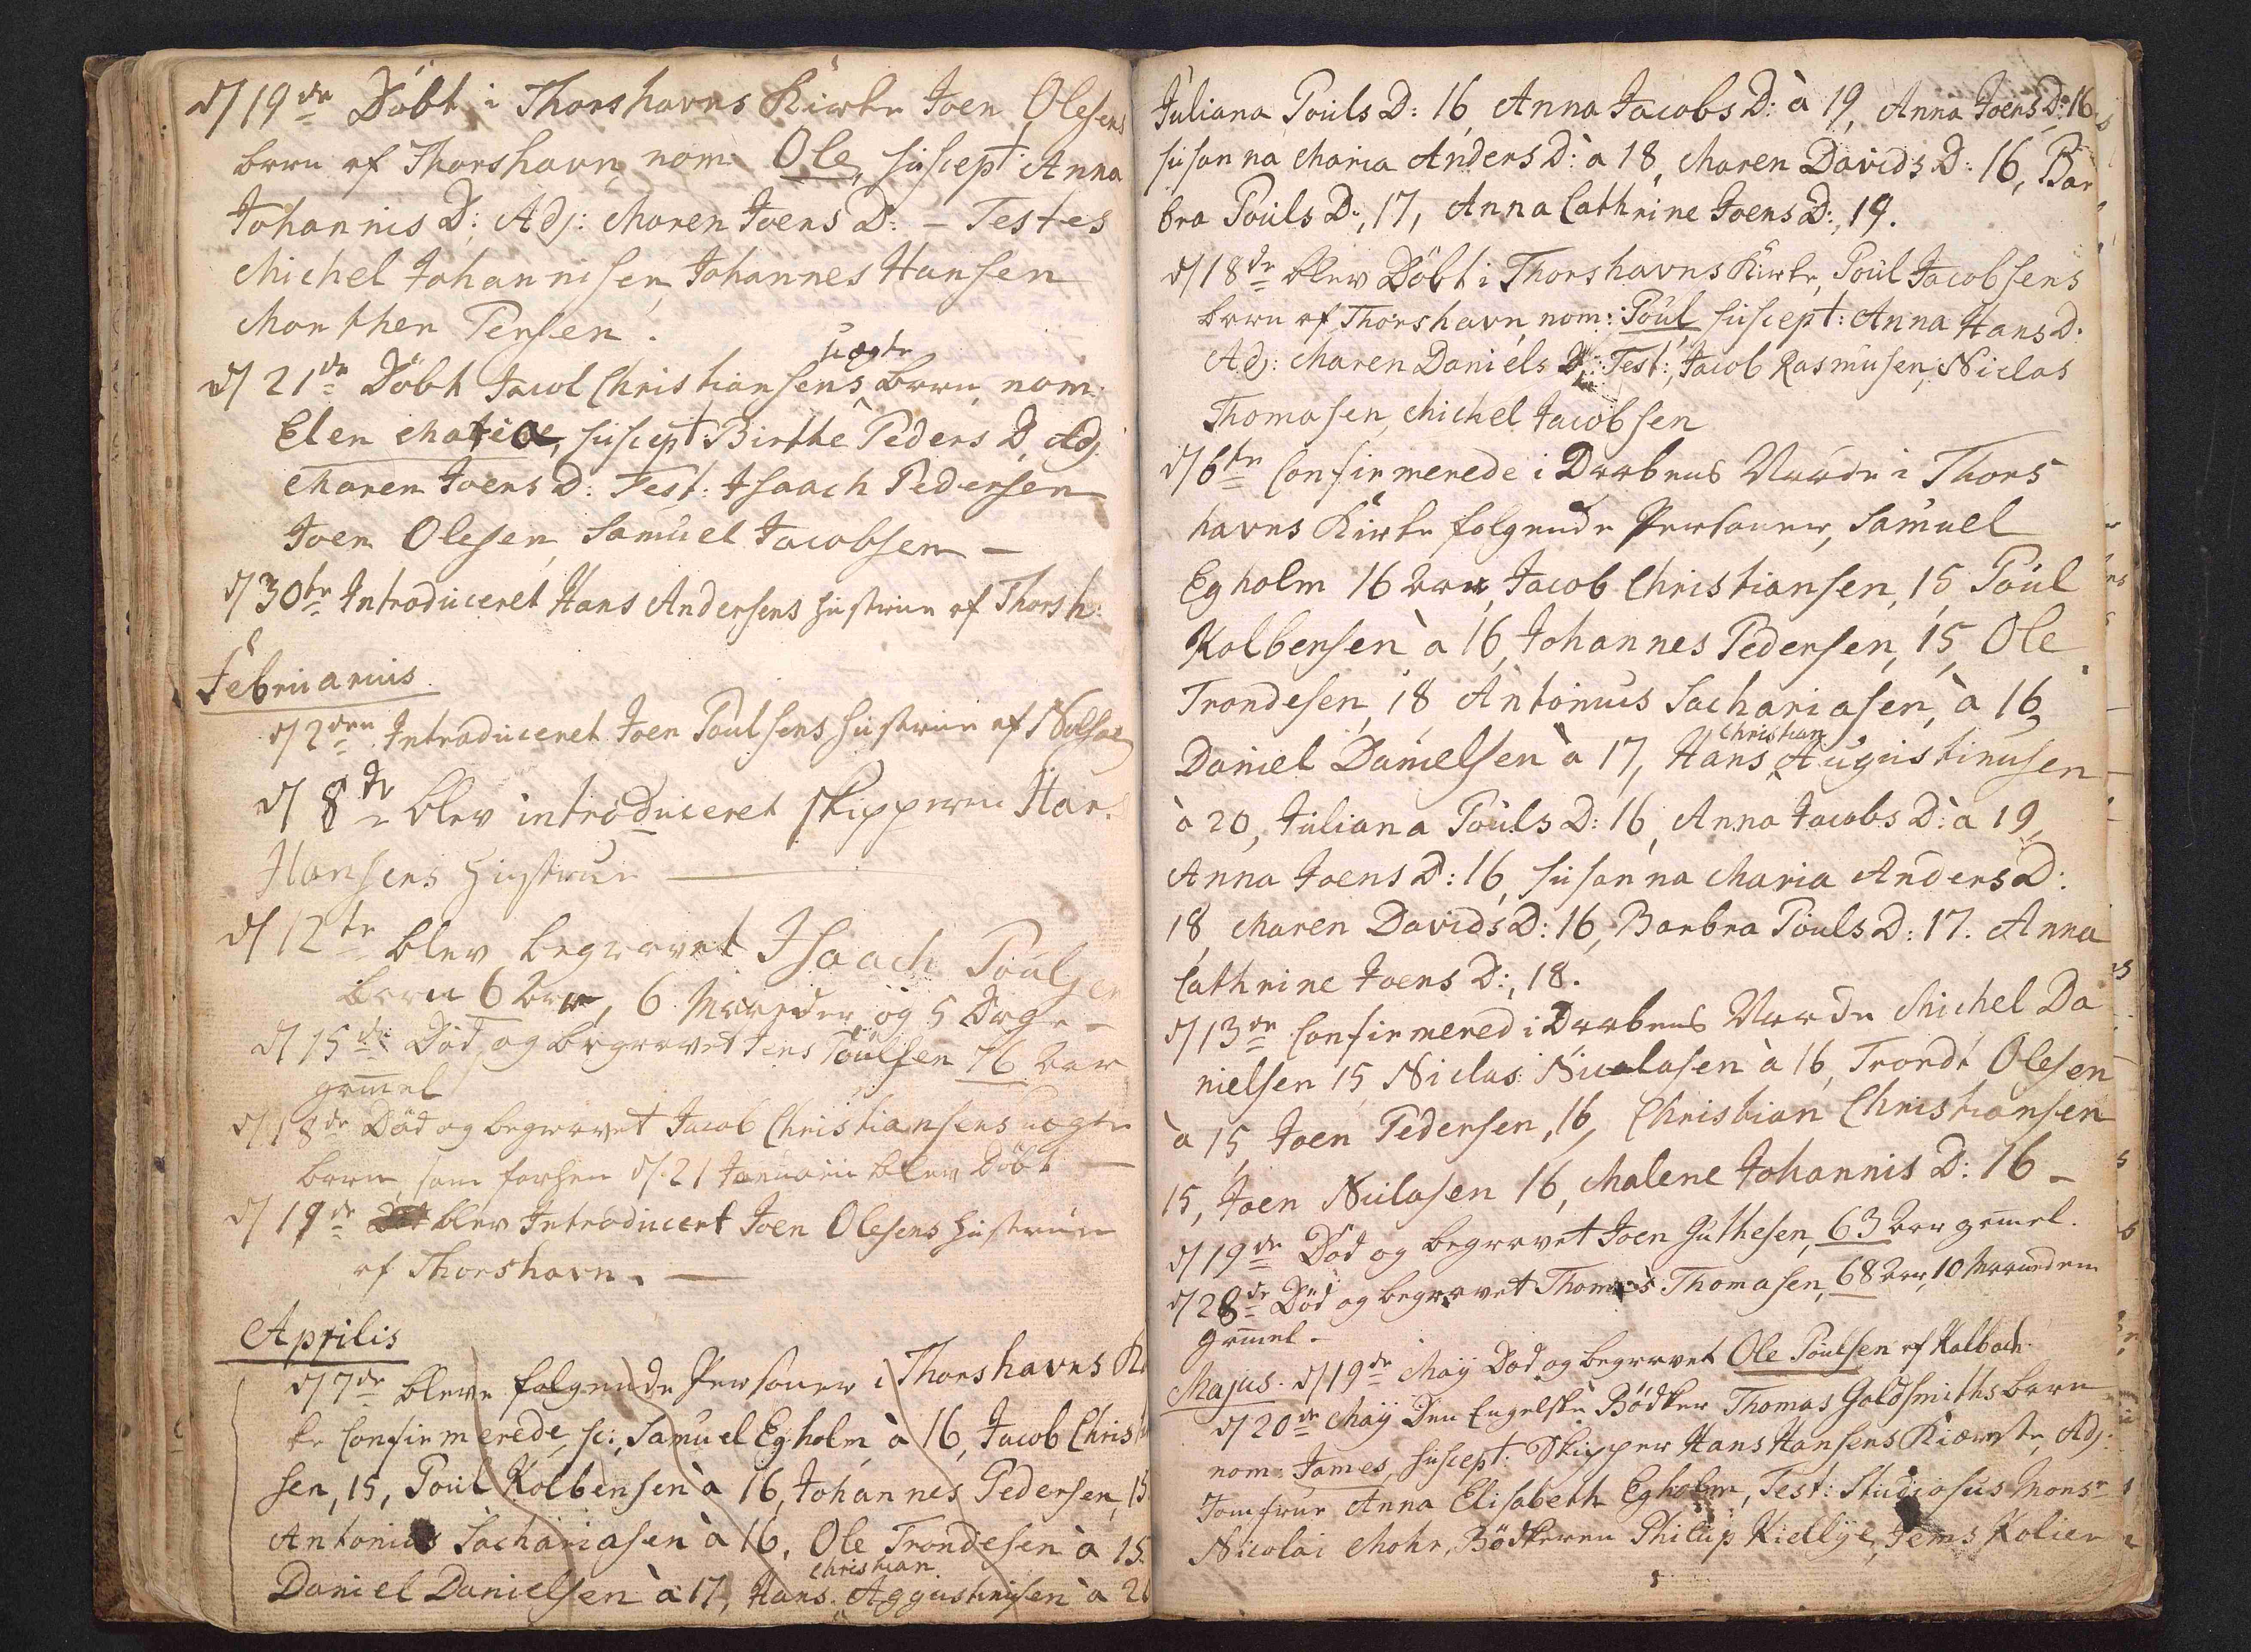 d/ 19de Döbt i Thorshavns Kirke Joen Olesens
barn af Thorshavn nom Ole, suscept: Anna
Johannis D: Adj: Maren Joens D: - Testes
Michel Johannisen, Johannes Hansen
Morthen Persen.
uægte
d/ 21de Döbt Jacob Christiansens barn, nom:
Elen Matia, suscept: Birthe Peders D, Adj
Maren Joens D: Test: Isaach Pedersen
Joen Olesen, Samuel Jacobsen -
d/ 30te Introduceret Hans Andersens hustrue af Thorsh:
Februarius
d/ 2den Introduceret Joen Poulsens hustrue af Nolsøe
d/ 8de blev introduceret Skipperen Hans
Hansens hustrue
d/ 12te blev begravet Isaach Poulsen
barn 6 aar, 6 Maaneder og 5 Dage -
d/ 15de Död og begravet Jens Poulsen 76 aar
gam̄el
d/ 18de Död og begravet Jacob Christiansens uægte
barn, som forhen d/ 21 Januarii blev Döbt -
d/ 19de blev Introducert Joen Olesens hustrue
af Thorshavn. -
Aprilis
d/ 7de bleve folgende Personer i Thorshavns Kir
ke Confirmerede, sc:, Samuel Egholm à 16, Jacob Christian
sen, 15, Poul Kolbensen à 16, Johannes Pedersen, 15
Antonius Sachariasen à 16, Ole Trondesen à 15.
Christian
Daniel Danielsen à 17, Hans Aggustinusen à 20
Juliana Pouls D: 16, Anna Jacobs D: à 19, Anna Joens D: 16
Susanna Maria Anders D: à 18, Maren Davids D: 16, Bar
bra Pouls D:, 17, Anna Cathrine Joens D:, 19.
d/ 18de blev Döbt i Thorshavns Kirke, Poul Jacobsens
barn af Thorshavn, nom: Poul, suscept: Anna Hans D:
Adj: Maren Daniels D: Test:, Jacob Rasmusen, Niclas
Thomasen, Michel Jacobsen
d/ 6te Confirmerede i Daabens Naade i Thors
havns Kirke folgende Personer, Samuel
Egholm 16 aar, Jacob Christiansen, 15, Poul
Kolbensen à 16, Johannes Pedersen, 15, Ole
Trondesen, 18 Antonius Sachariasen, à 16,
Christian
Daniel Danielsen à 17, Hans Augustinusen
à 20, Juliana Pouls D: 16, Anna Jacobs D: à 19,
Anna Joens D: 16, Susanna Maria Anders D:
18, Maren Davids D: 16, Barbra Pouls D: 17. Anna
Cathrine Joens D:, 18.
d/ 13de Confirmered i Daabens Naade Michel Da
nielsen 15, Niclas Nicolasen à 16, Trondt Olesen
à 15, Joen Pedersen, 16, Christian Christiansen
15, Joen Niclasen 16, Malene Johannis D: 16 -
d/ 19de Död og begravet Joen Guthesen, 63 aar gam̄el.
d/ 28de Död og begravet Thomas Thomasen, 68 aar, 10 Maaneder
gam̄el -
Majus. d/ 19de May Död og begravet Ole Poulsen af Kalbach.
d/ 20de May Den Engelske Bödker Thomas Goldsmiths barn
nom. James, suscept: Skipper Hans Hansens Kiæreste, Adj:
Jomfrue Anna Elisabeth Egholm, Test: Studiosus Monsr
Nicolai Mohr, Bödkeren Philip Kiellye, Jems Kolier